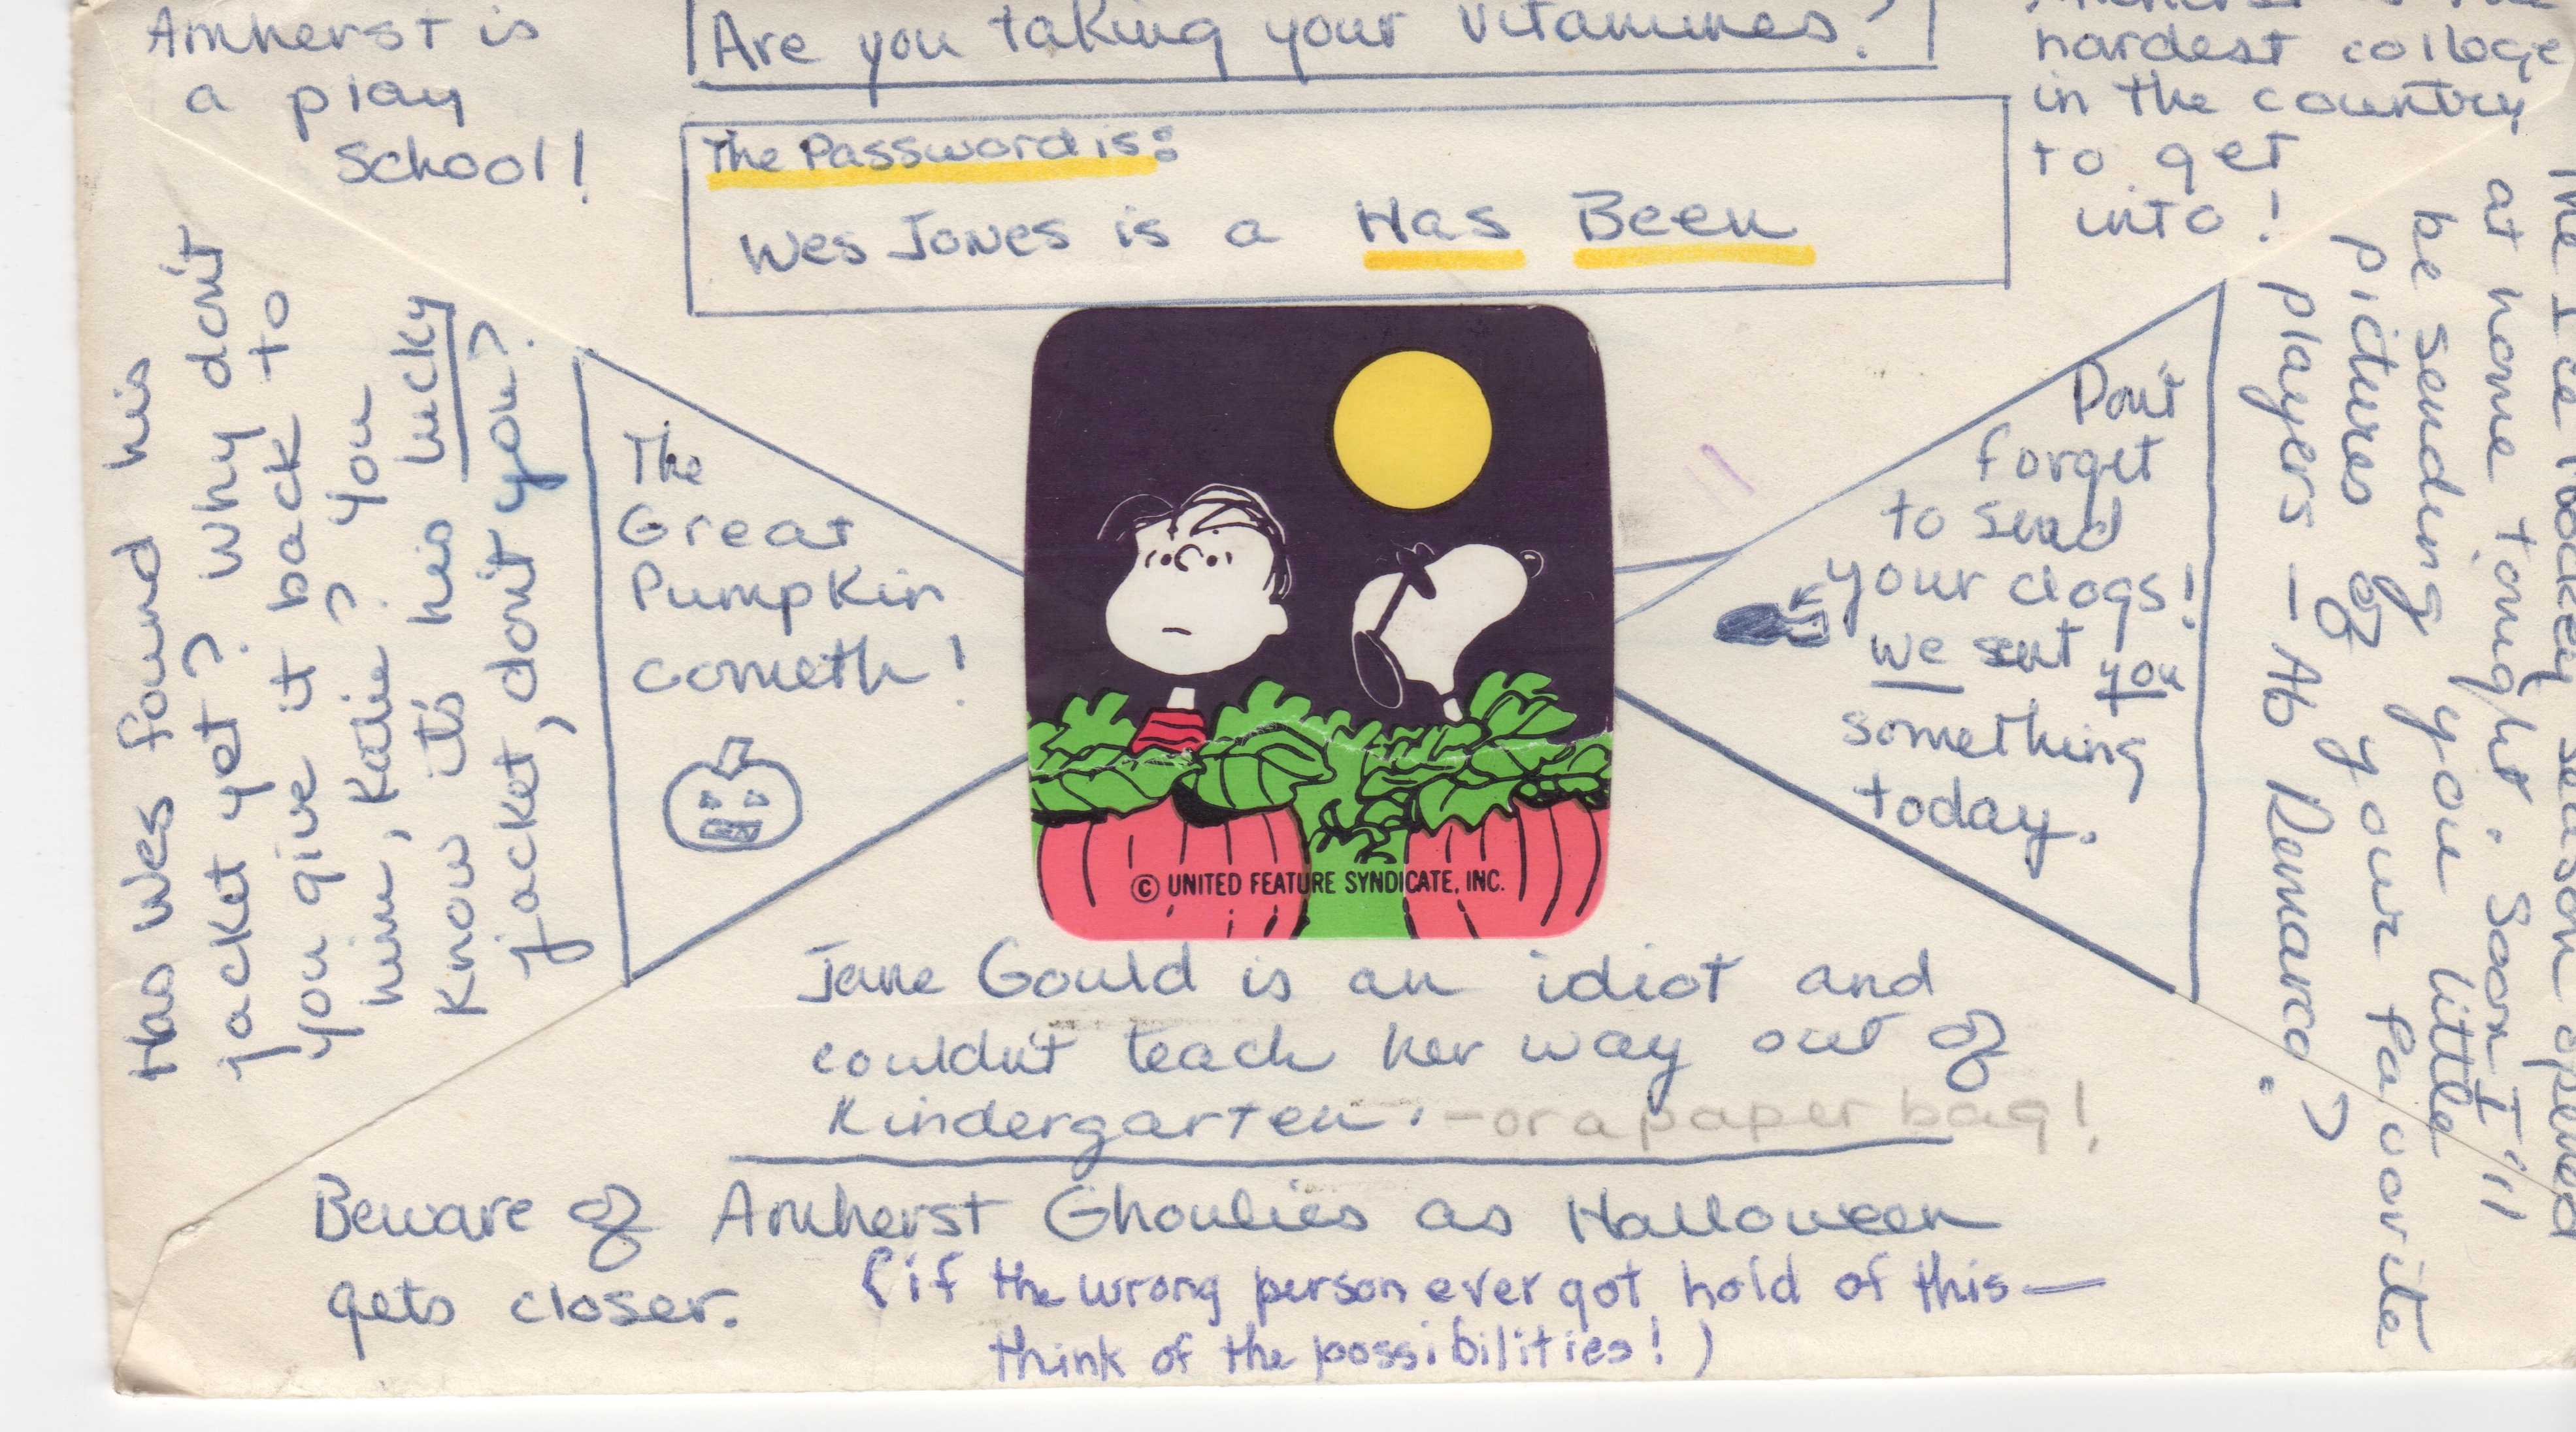 Amherst is
a play
school!
Are you taking your vitamines?
hardest college
in the country
to get
into!
The Password is:
Wes Jones is a Has Been
Has Wes found his
jacket yet? Why don't
you give it back to
him, Katie? You
know it's his lucky
jacket, don't you?
The
Great
Pumpkin
cometh!
© UNITED FEATURE SYNDICATE, INC.
Don't
forget
to send
your clogs!
we sent you
something
today.
The Ice Hockey season opened
at home tonight. Soon I'll
be sending you little
pictures of your favorite
players — Ab Demarco?
Jane Gould is an idiot and
couldn't teach her way out of
Kindergarten. - or a paper bag!
Beware of Amherst Ghoulies as Halloween
gets closer.
(if the wrong person ever got hold of this—
think of the possibilities!)